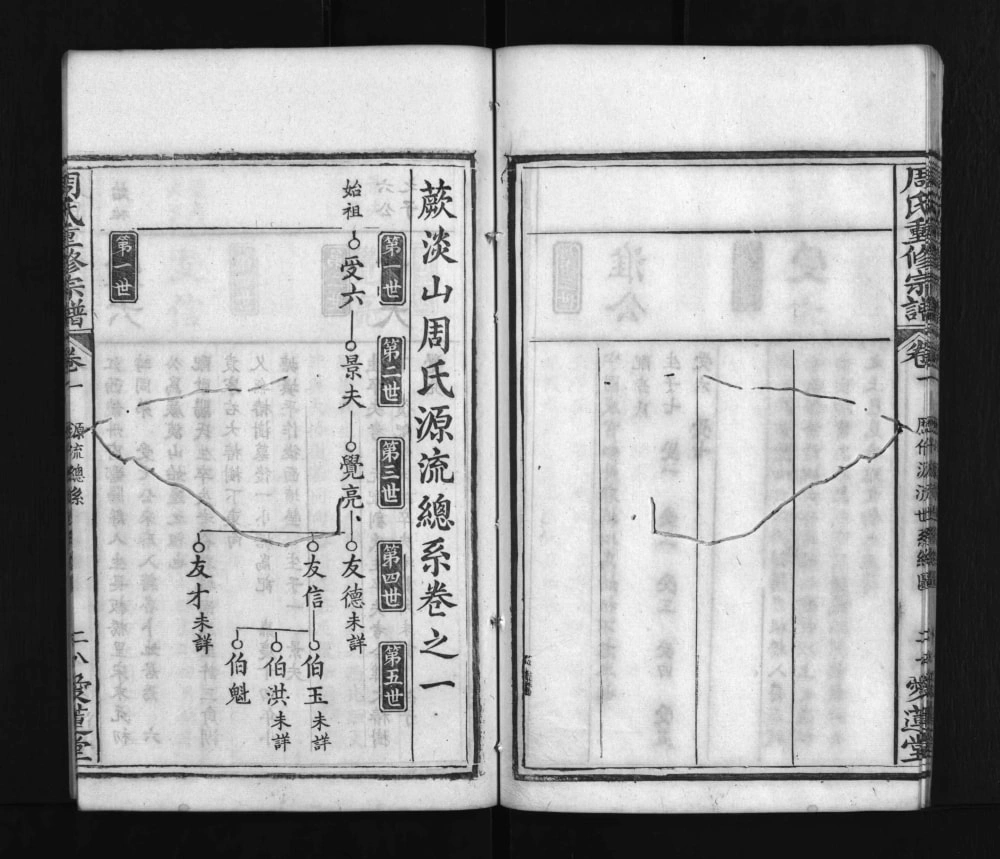 周氏重修宗譜
卷一
二十七
愛蓮堂
蕨淡山周氏源流總系卷之一
第一世
第二世
第三世
第四世
第五世
始祖
受六
景夫
覺亮
友德未詳
友信
伯玉未詳
伯洪未詳
伯魁
友才未詳
第一世
周氏重修宗譜
卷一
源流總系
二八
愛蓮堂